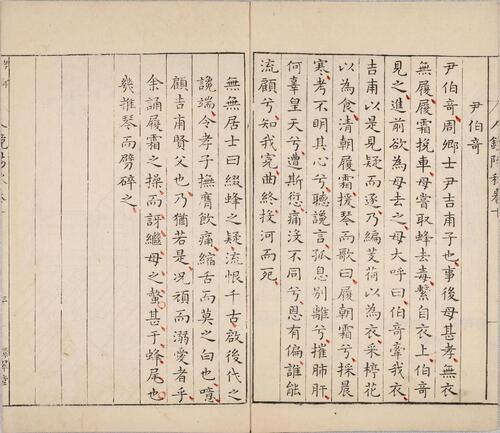 人鏡陽秋卷十
尹伯奇
尹伯奇周卿士尹吉甫子也事後母甚孝無衣
無履履霜挽車母嘗取蜂去毒繫自衣上伯奇
見之進前欲為母去之母大呼曰伯奇牽我衣
吉甫以是見疑而逐乃編芰荷以為衣采楟花
以為食清朝履霜援琴而歌曰履朝霜兮採晨
寒考不明其心兮聽讒言孤息別離兮摧肺肝
何辜皇天兮遭斯愆痛沒不同兮恩有偏誰能
流顧兮知我冤曲終投河而死
無無居士曰綴蜂之疑流恨千古啟後代之
讒端令孝子撫膺飲痛縮舌而莫之白也噫
顧吉甫賢父也乃猶若是況頑而溺愛者乎
余誦履霜之操而訝繼母之螫甚于蜂尾也
幾推琴而劈碎之